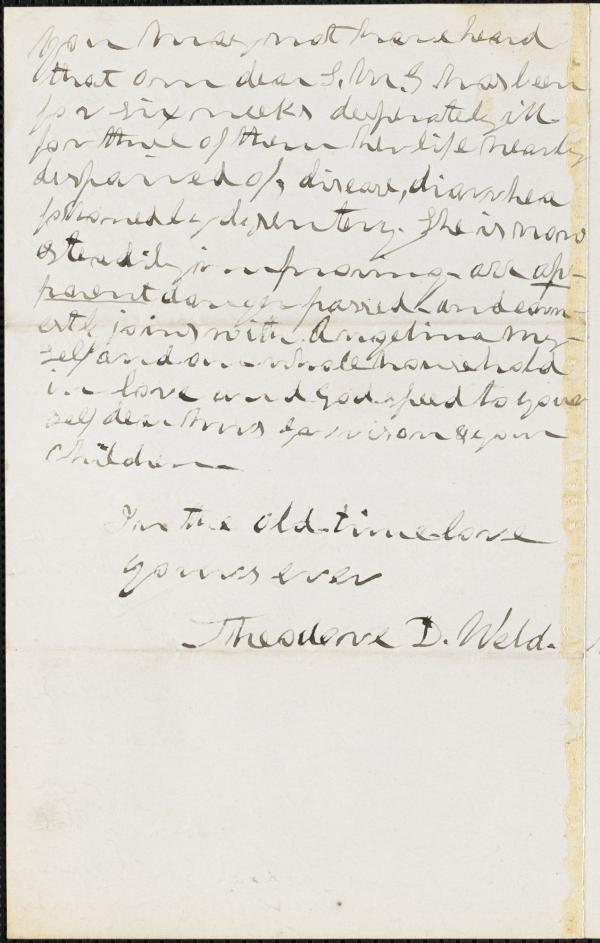 you may not have heard
that our dear S. M. G has been
for six weeks desperately ill
for three of them her life nearly
despaired of, disease, diarrhea
followed by dysentery. She is now
steadily improving - all ap-
parent danger passed - and earn-
estly joins with Angelina my-
self and our whole household
in love and God-speed to your
self dear Mrs Garrison & your
children -
In the old-time love
yours ever
Theodore D. Weld.